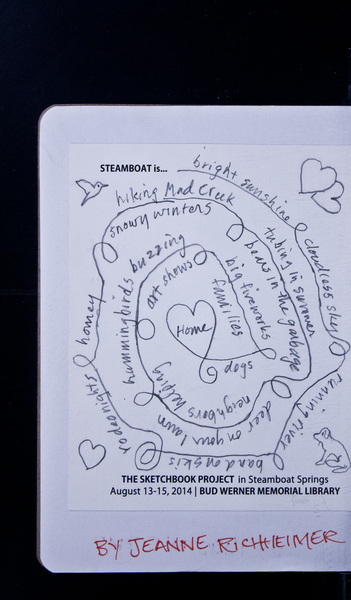 STEAMBOAT is...
bright sunshine
cloudless sky
running river
band on skis
rodeo nights
homey
hiking Mad Creek
snowy winters
tubing in summer
bears in the garbage
deer on your lawn
neighbors helping
hummingbirds buzzing
art shows
big fireworks
families
dogs
Home
THE SKETCHBOOK PROJECT in Steamboat Springs
August 13-15, 2014 | BUD WERNER MEMORIAL LIBRARY
BY JEANNE RICHHEIMER